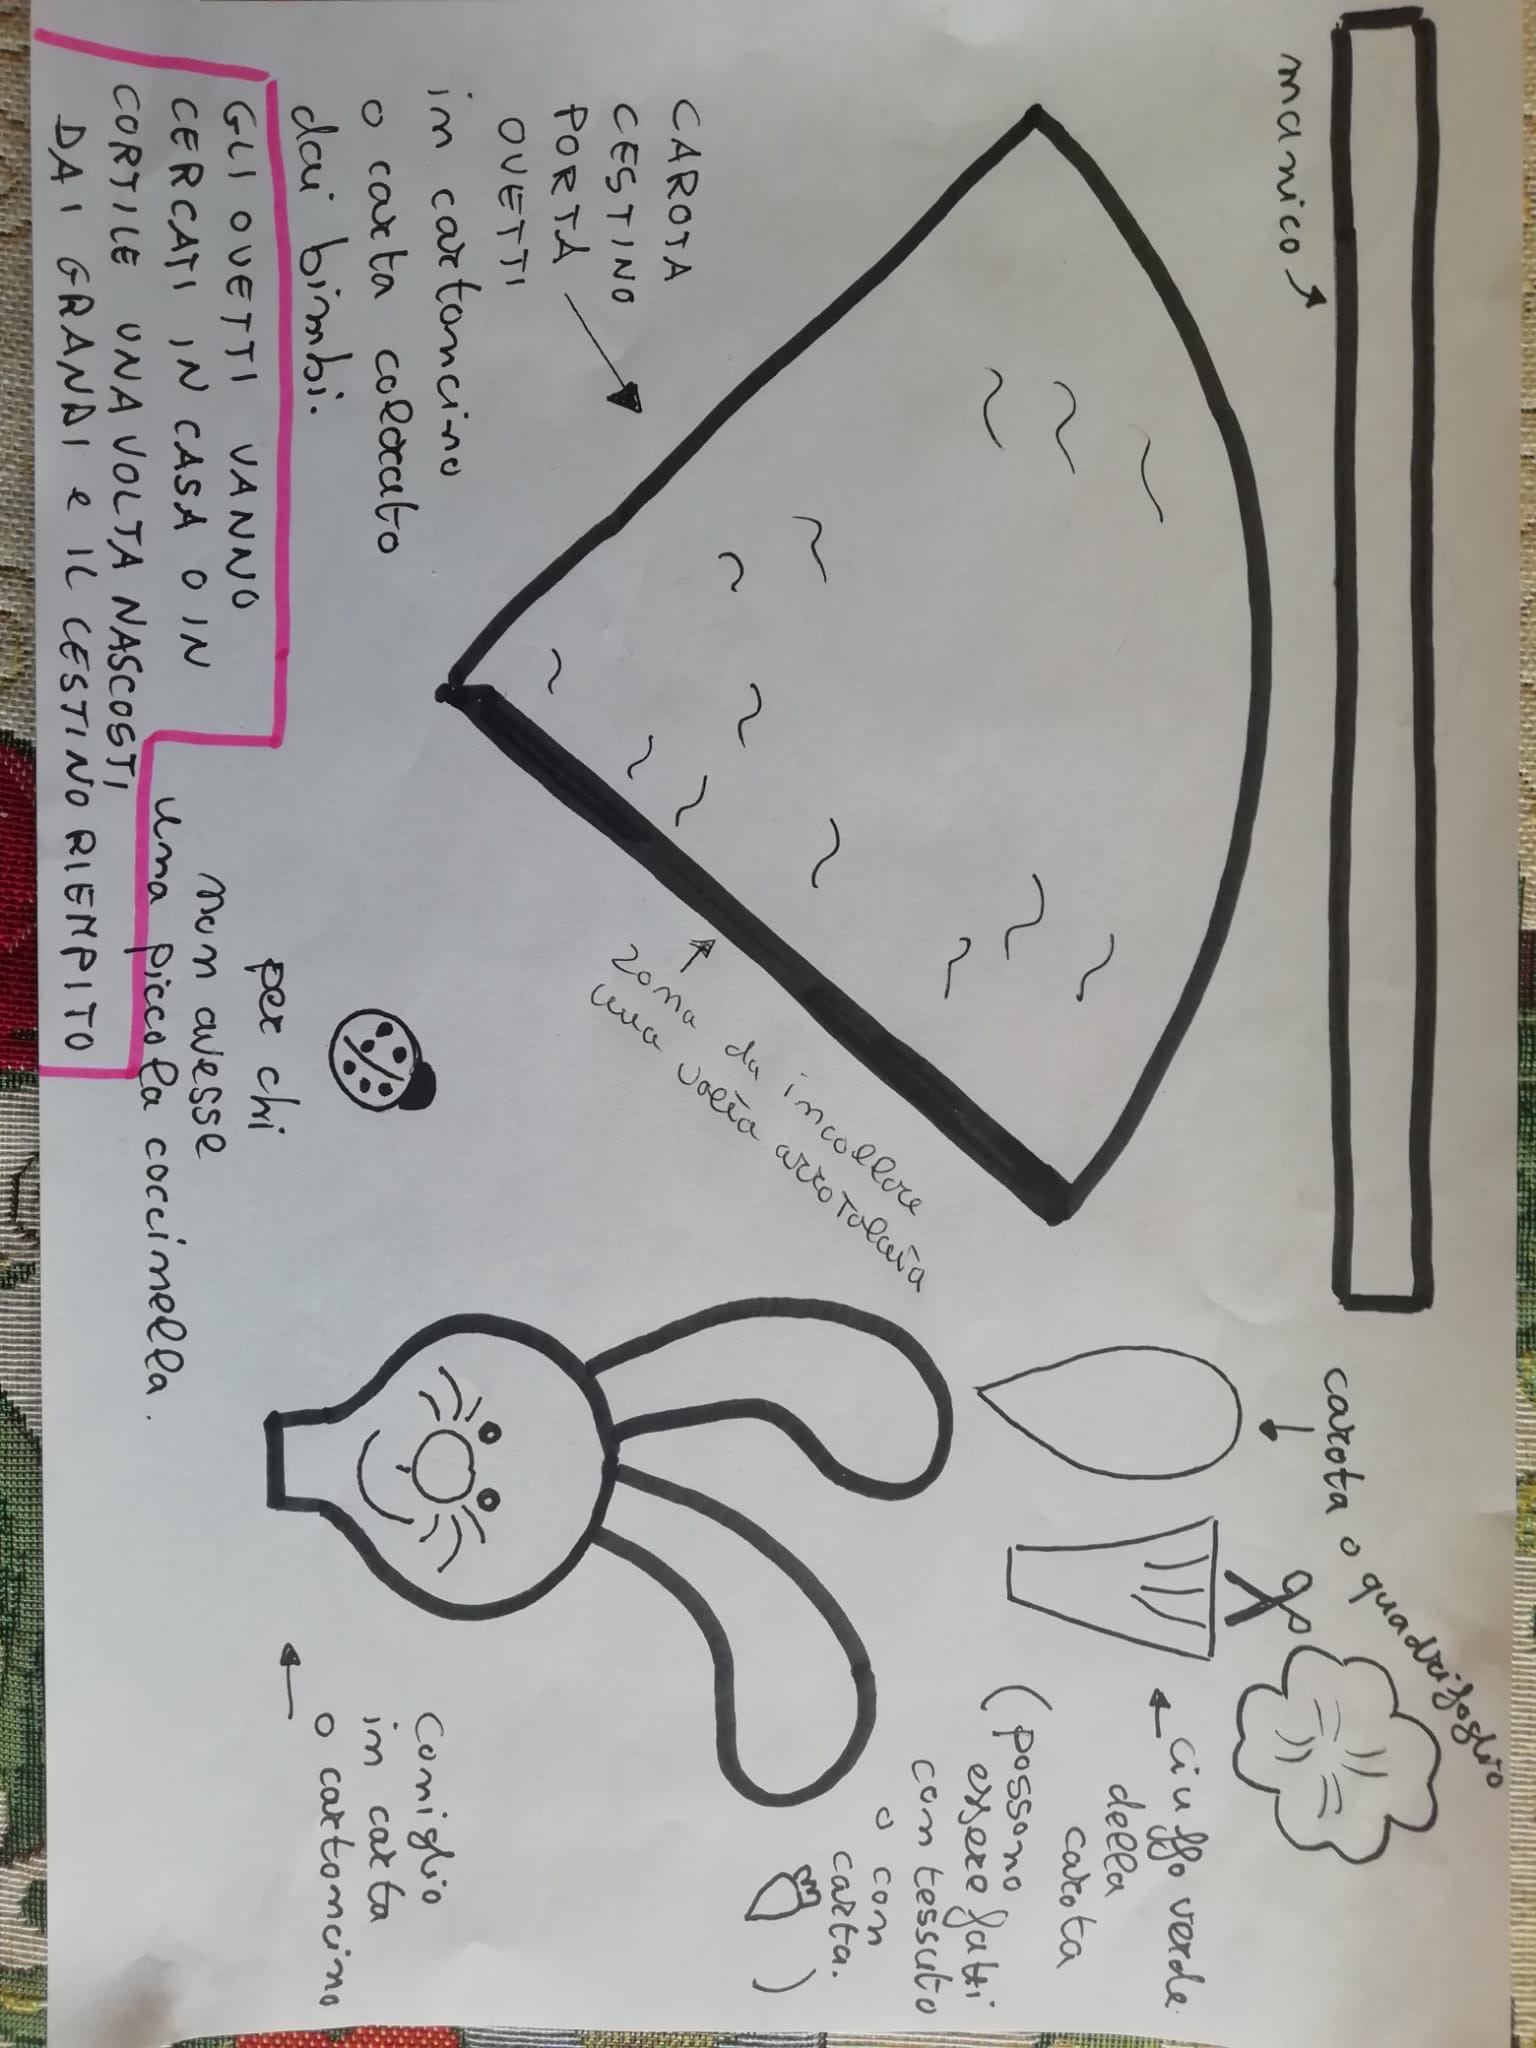 manico
carota o quadrifoglio
ciuffo verde
della
carota
(possono
essere fatti
con tessuto
o con
carta.
)
CAROTA
CESTINO
PORTA
OVETTI
in cartoncino
o carta colorato
dai bimbi.
zona da incollare
una volta arrotolata
GLI OVETTI VANNO
CERCATI IN CASA O IN
CORTILE UNA VOLTA NASCOSTI
DAI GRANDI e IL CESTINO RIEMPITO
per chi
non avesse
una piccola coccinella.
coniglio
in carta
o cartoncino